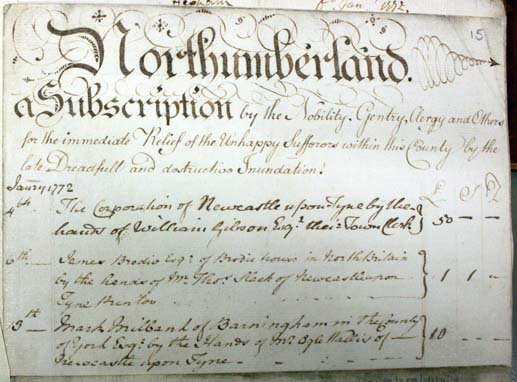 Hexham 6 Jan 1772
15
Northumberland.
a Subscription by the Nobility, Gentry, Clergy and Others
for the immediate Relief of the Unhappy Sufferors within this County by the
late Dreadfull and destructive Inundation.
Janry 1772 £ S D
4th The Corporation of Newcastle upon Tyne by the
hands of William Gibson Esqr. their Town Clerk } 50 — —
6th — James Brodie Esqr. of Brodie house in North Britain
by the hands of Mr. Thos. Slack of Newcastle upon } 1 1 —
Tyne Printer
13th — Mark Milbank of Barningham in the County
of York Esqr. by the Hands of Mr. Ogle Wallis of — } 10 — —
Newcastle upon Tyne —